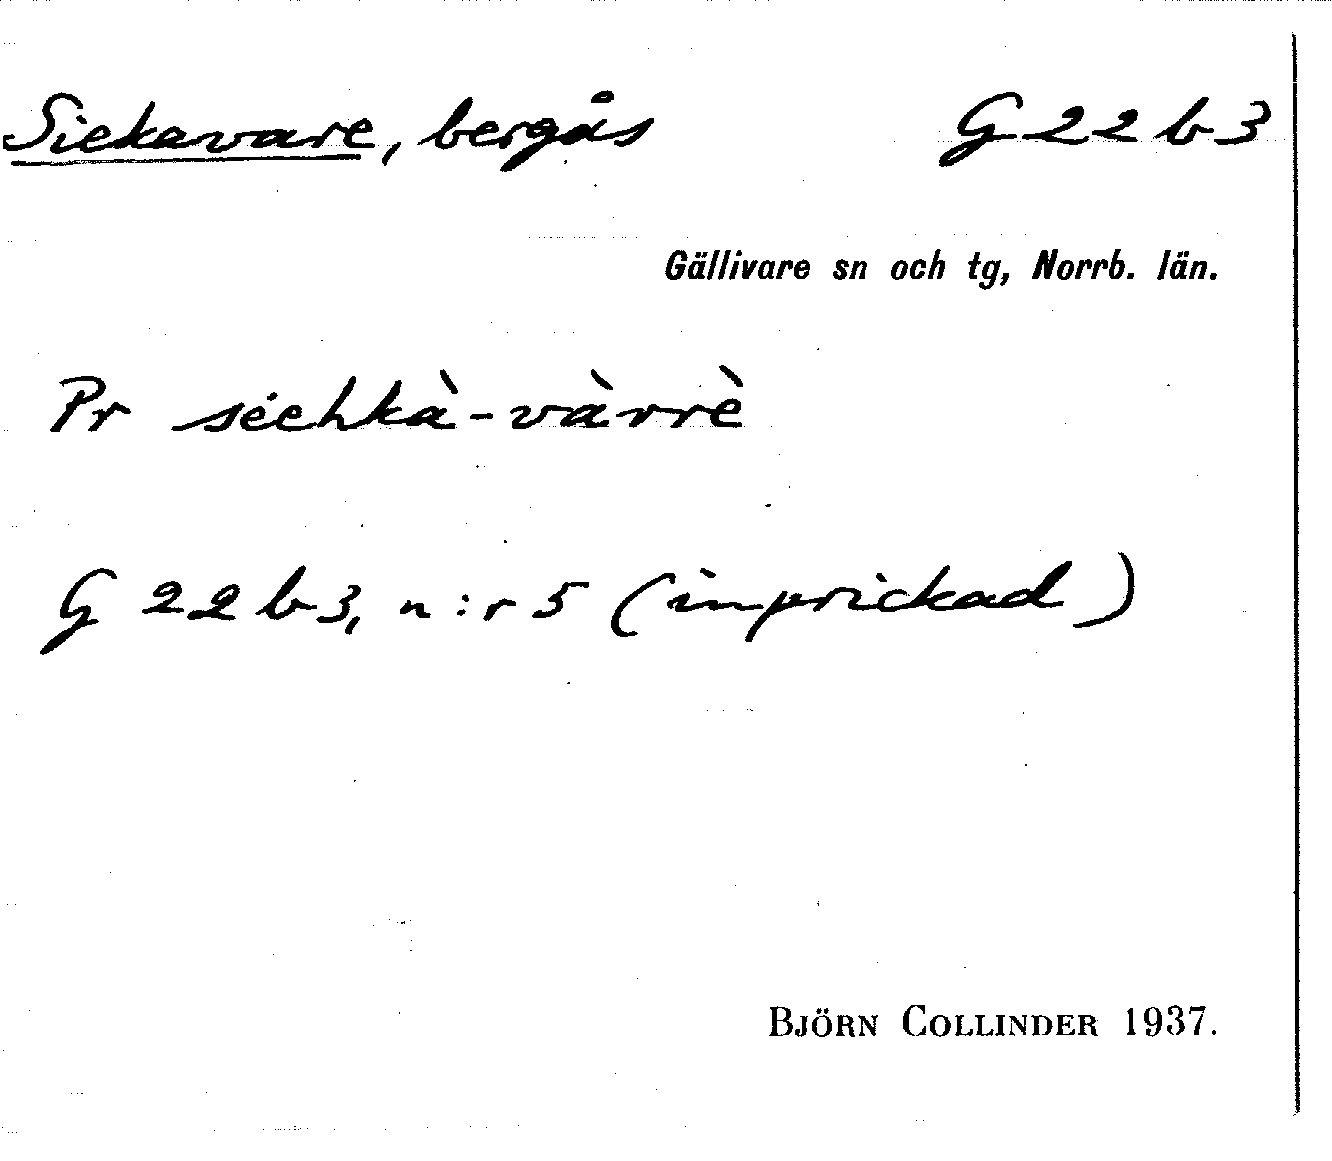 Siekavare, bergås G 22 b 3
Gällivare sn och tg, Norrb. län.
Pr sėehkὰ-vὰrrὲ
G 22 b 3, n:r 5 (inprickad)
BJÖRN COLLINDER 1937.